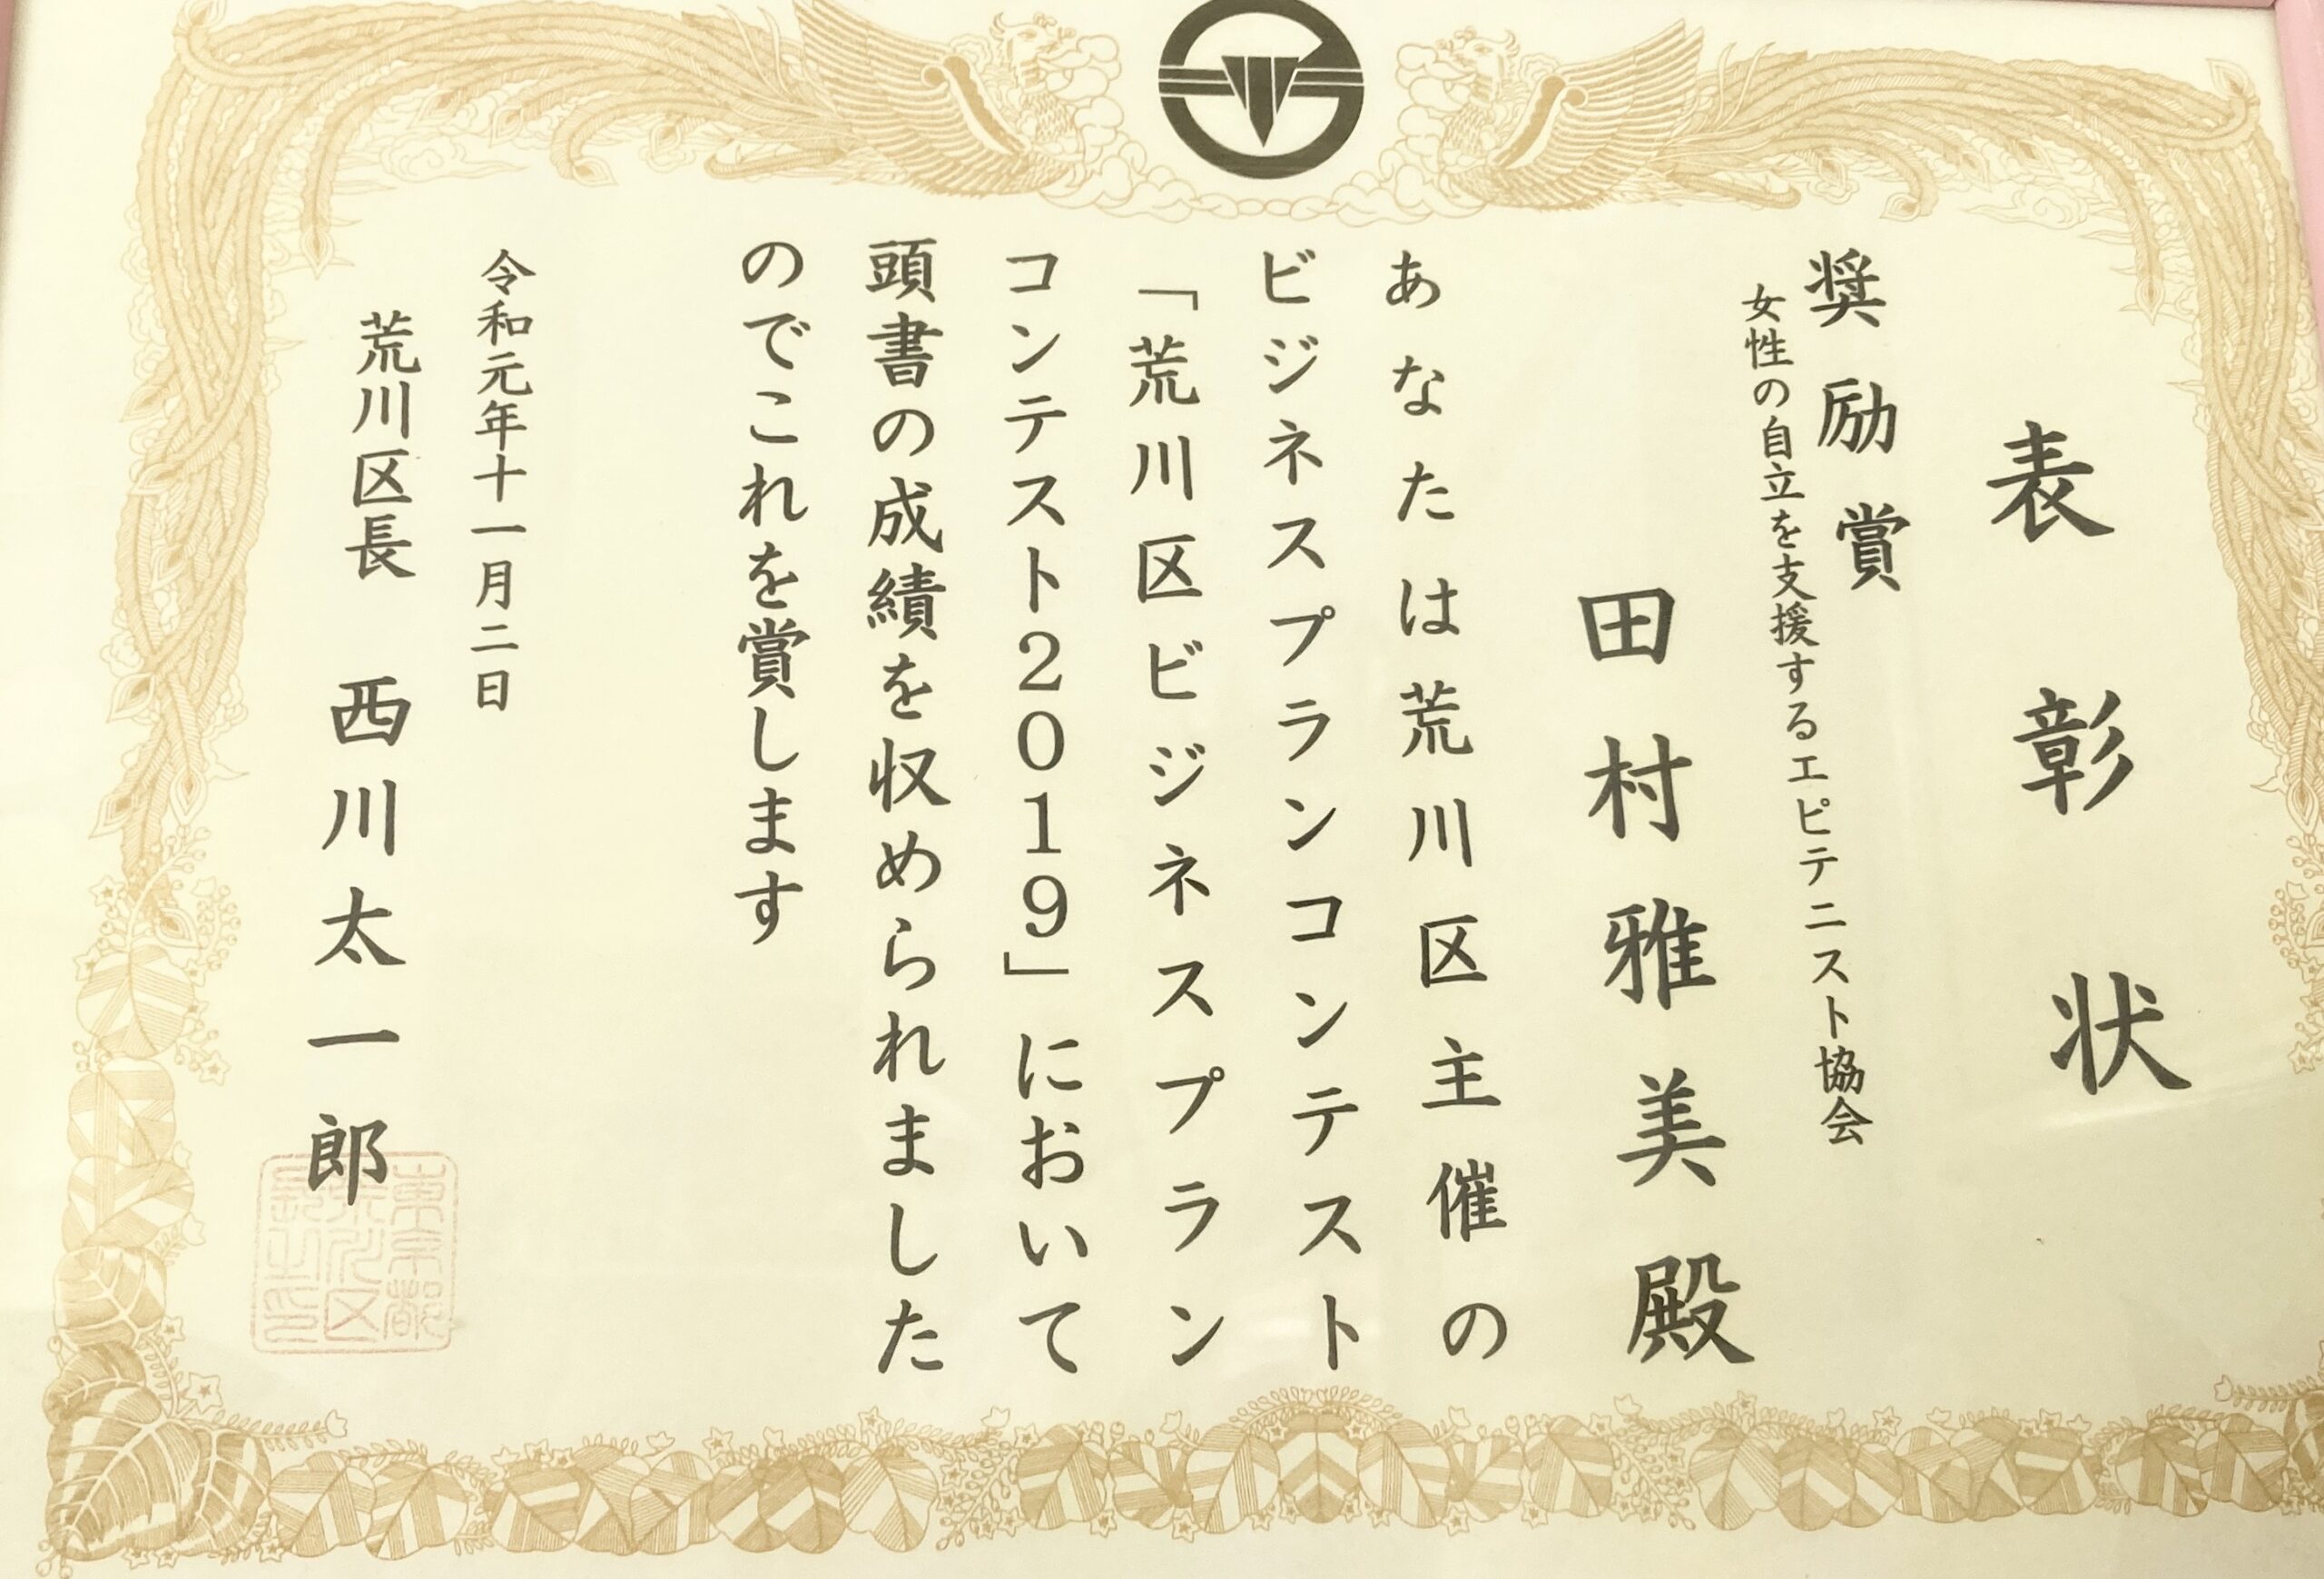 表彰状
奨励賞
女性の自立を支援するエピテニスト協会
田村雅美殿
あなたは荒川区主催の
ビジネスプランコンテスト
「荒川区ビジネスプラン
コンテスト2019」において
頭書の成績を収められました
のでこれを賞します
令和元年十一月二日
荒川区長 西川太一郎
東京都
荒川区
長之印